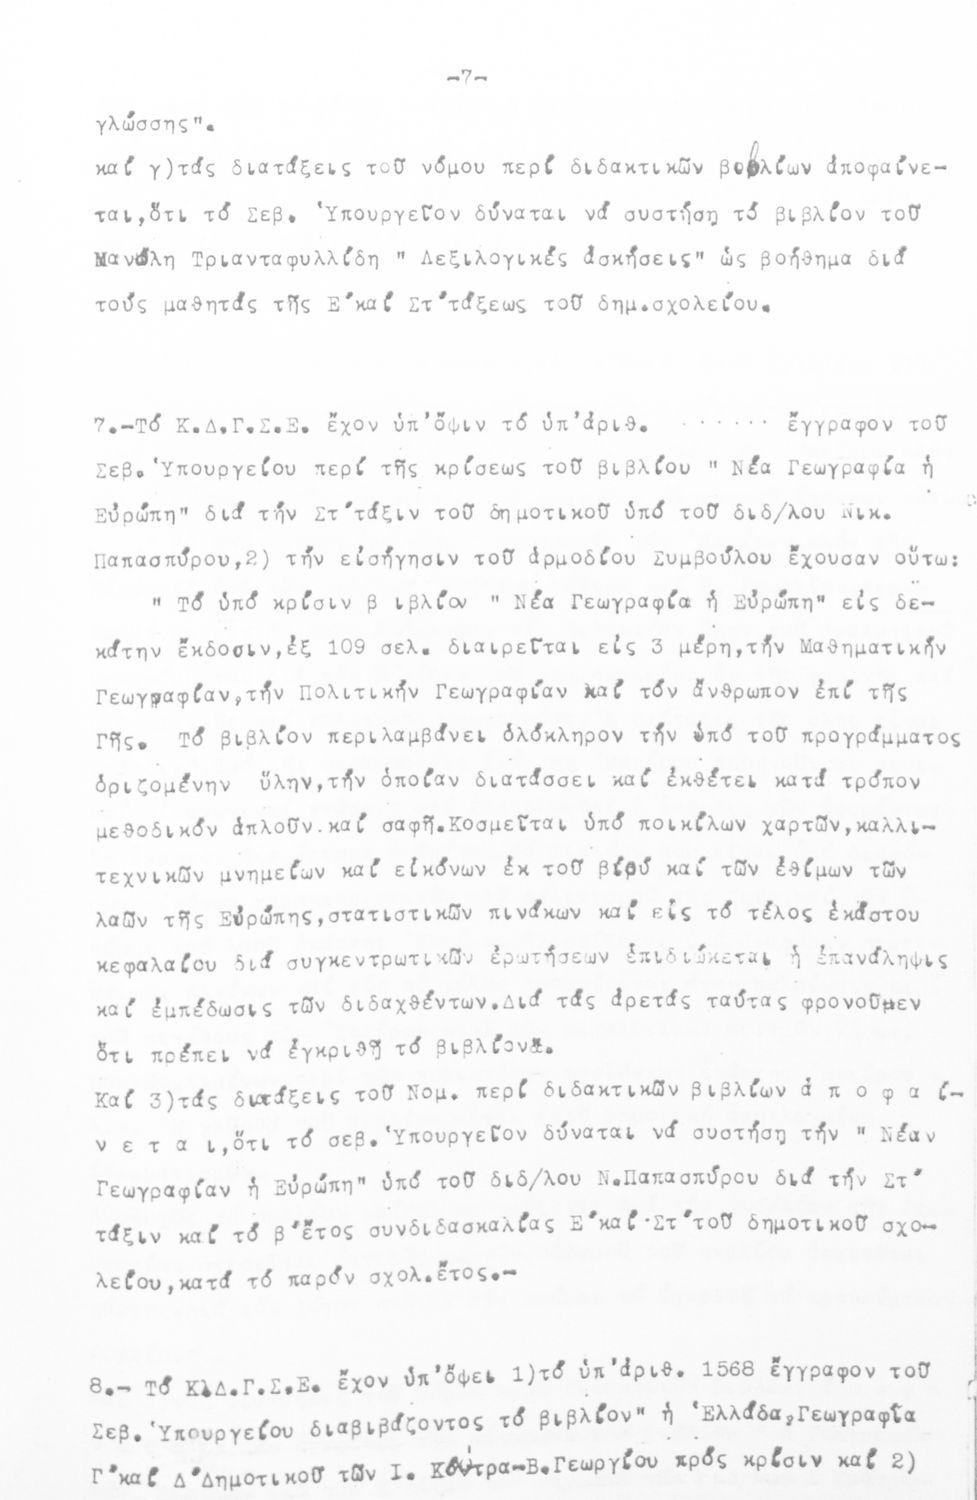 -7-
γλώσσης".
καί γ)τάς διατάξεις τοῦ νόμου περί διδακτικῶν βιβλίων ἀποφαίνε-
ται,ὅτι τό Σεβ. Ὑπουργεῖον δύναται νά συστήσῃ τό βιβλίον τοῦ
Μανόλη Τριανταφυλλίδη " Λεξιλογικές ἀσκήσεις" ὡς βοήθημα διά
τούς μαθητάς τῆς Ε΄καί Στ΄τάξεως τοῦ δημ.σχολείου.
7.-Τό Κ.Δ.Γ.Σ.Ε. ἔχον ὑπ'ὄψιν τό ὑπ'ἀριθ. ...... ἔγγραφον τοῦ
Σεβ.Ὑπουργείου περί τῆς κρίσεως τοῦ βιβλίου " Νέα Γεωγραφία ἡ
Εὐρώπη" διά τήν Στ΄τάξιν τοῦ δημοτικοῦ ὑπό τοῦ διδ/λου Νικ.
Παπασπύρου,2) τήν εἰσήγησιν τοῦ ἁρμοδίου Συμβούλου ἔχουσαν οὕτω:
" Τό ὑπό κρίσιν β ιβλίον " Νέα Γεωγραφία ἡ Εὐρώπη" εἰς δε-
κάτην ἔκδοσιν,ἐξ 109 σελ. διαιρεῖται εἰς 3 μέρη,τήν Μαθηματικήν
Γεωγραφίαν,τήν Πολιτικήν Γεωγραφίαν καί τόν ἄνθρωπον ἐπί τῆς
Γῆς. Τό βιβλίον περιλαμβάνει ὁλόκληρον τήν ὑπό τοῦ προγράμματος
ὁριζομένην ὕλην,τήν ὁποίαν διατάσσει καί ἐκθέτει κατά τρόπον
μεθοδικόν ἁπλοῦν.καί σαφῆ.Κοσμεῖται ὑπό ποικίλων χαρτῶν,καλλι-
τεχνικῶν μνημείων καί εἰκόνων ἐκ τοῦ βίου καί τῶν ἐθίμων τῶν
λαῶν τῆς Εὐρώπης,στατιστικῶν πινάκων καί εἰς τό τέλος ἑκάστου
κεφαλαίου διά συγκεντρωτικῶν ἐρωτήσεων ἐπιδιώκεται ἡ ἐπανάληψις
καί ἐμπέδωσις τῶν διδαχθέντων.Διά τάς ἀρετάς ταύτας φρονοῦμεν
ὅτι πρέπει νά ἐγκριθῇ τό βιβλίον.
Καί 3)τάς διατάξεις τοῦ Νομ. περί διδακτικῶν βιβλίων ἀ π ο φ α ί-
ν ε τ α ι,ὅτι τό σεβ.Ὑπουργεῖον δύναται νά συστήσῃ τήν " Νέαν
Γεωγραφίαν ἡ Εὐρώπη" ὑπό τοῦ διδ/λου Ν.Παπασπύρου διά τήν Στ΄
τάξιν καί τό β΄ἔτος συνδιδασκαλίας Ε΄καί·Στ΄τοῦ δημοτικοῦ σχο-
λείου,κατά τό παρόν σχολ.ἔτος.-
8.- Τό Κ.Δ.Γ.Σ.Ε. ἔχον ὑπ'ὄψει 1)τό ὑπ'ἀριθ. 1568 ἔγγραφον τοῦ
Σεβ.Ὑπουργείου διαβιβάζοντος τό βιβλίον" ἡ Ἑλλάδα,Γεωγραφία
Γ΄καί Δ΄Δημοτικοῦ τῶν Ι. Κούτρα-Β.Γεωργίου πρός κρίσιν καί 2)